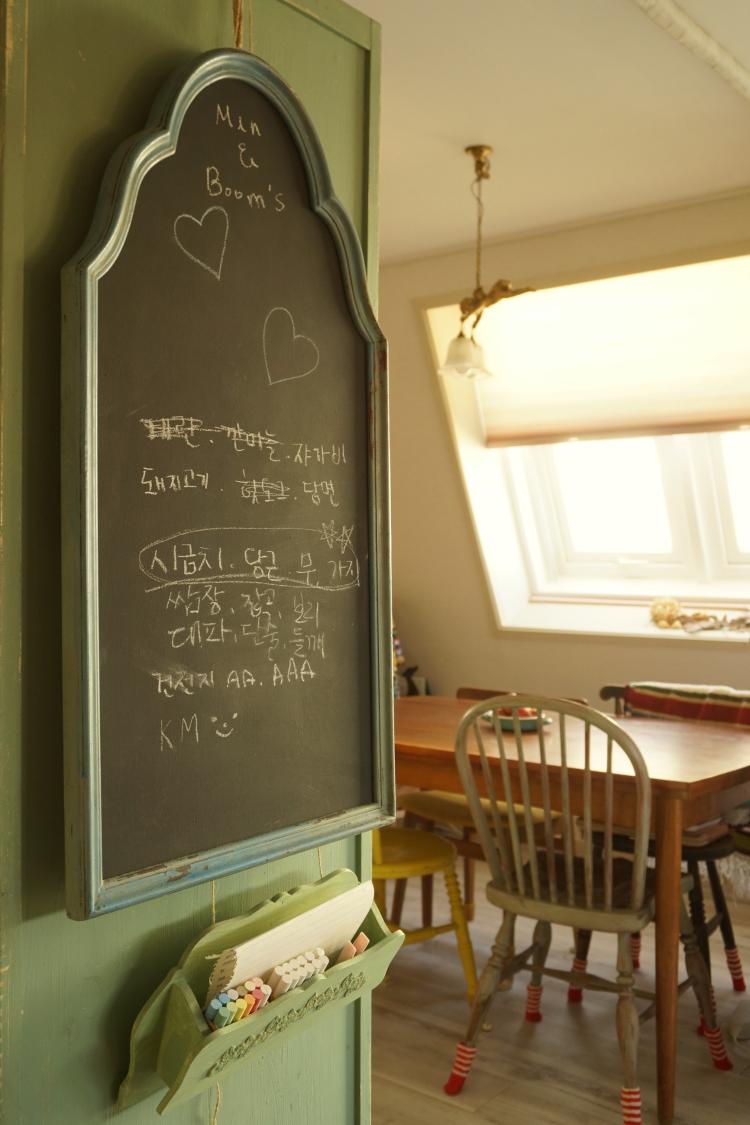 Min
&
Boom's
계란. 깐마늘. 쟈가비
돼지고기. 당면
시금치. 당근. 무. 가지
쌈장. 잡곡. 보리
대파. 들깨
건전지 AA. AAA
KM